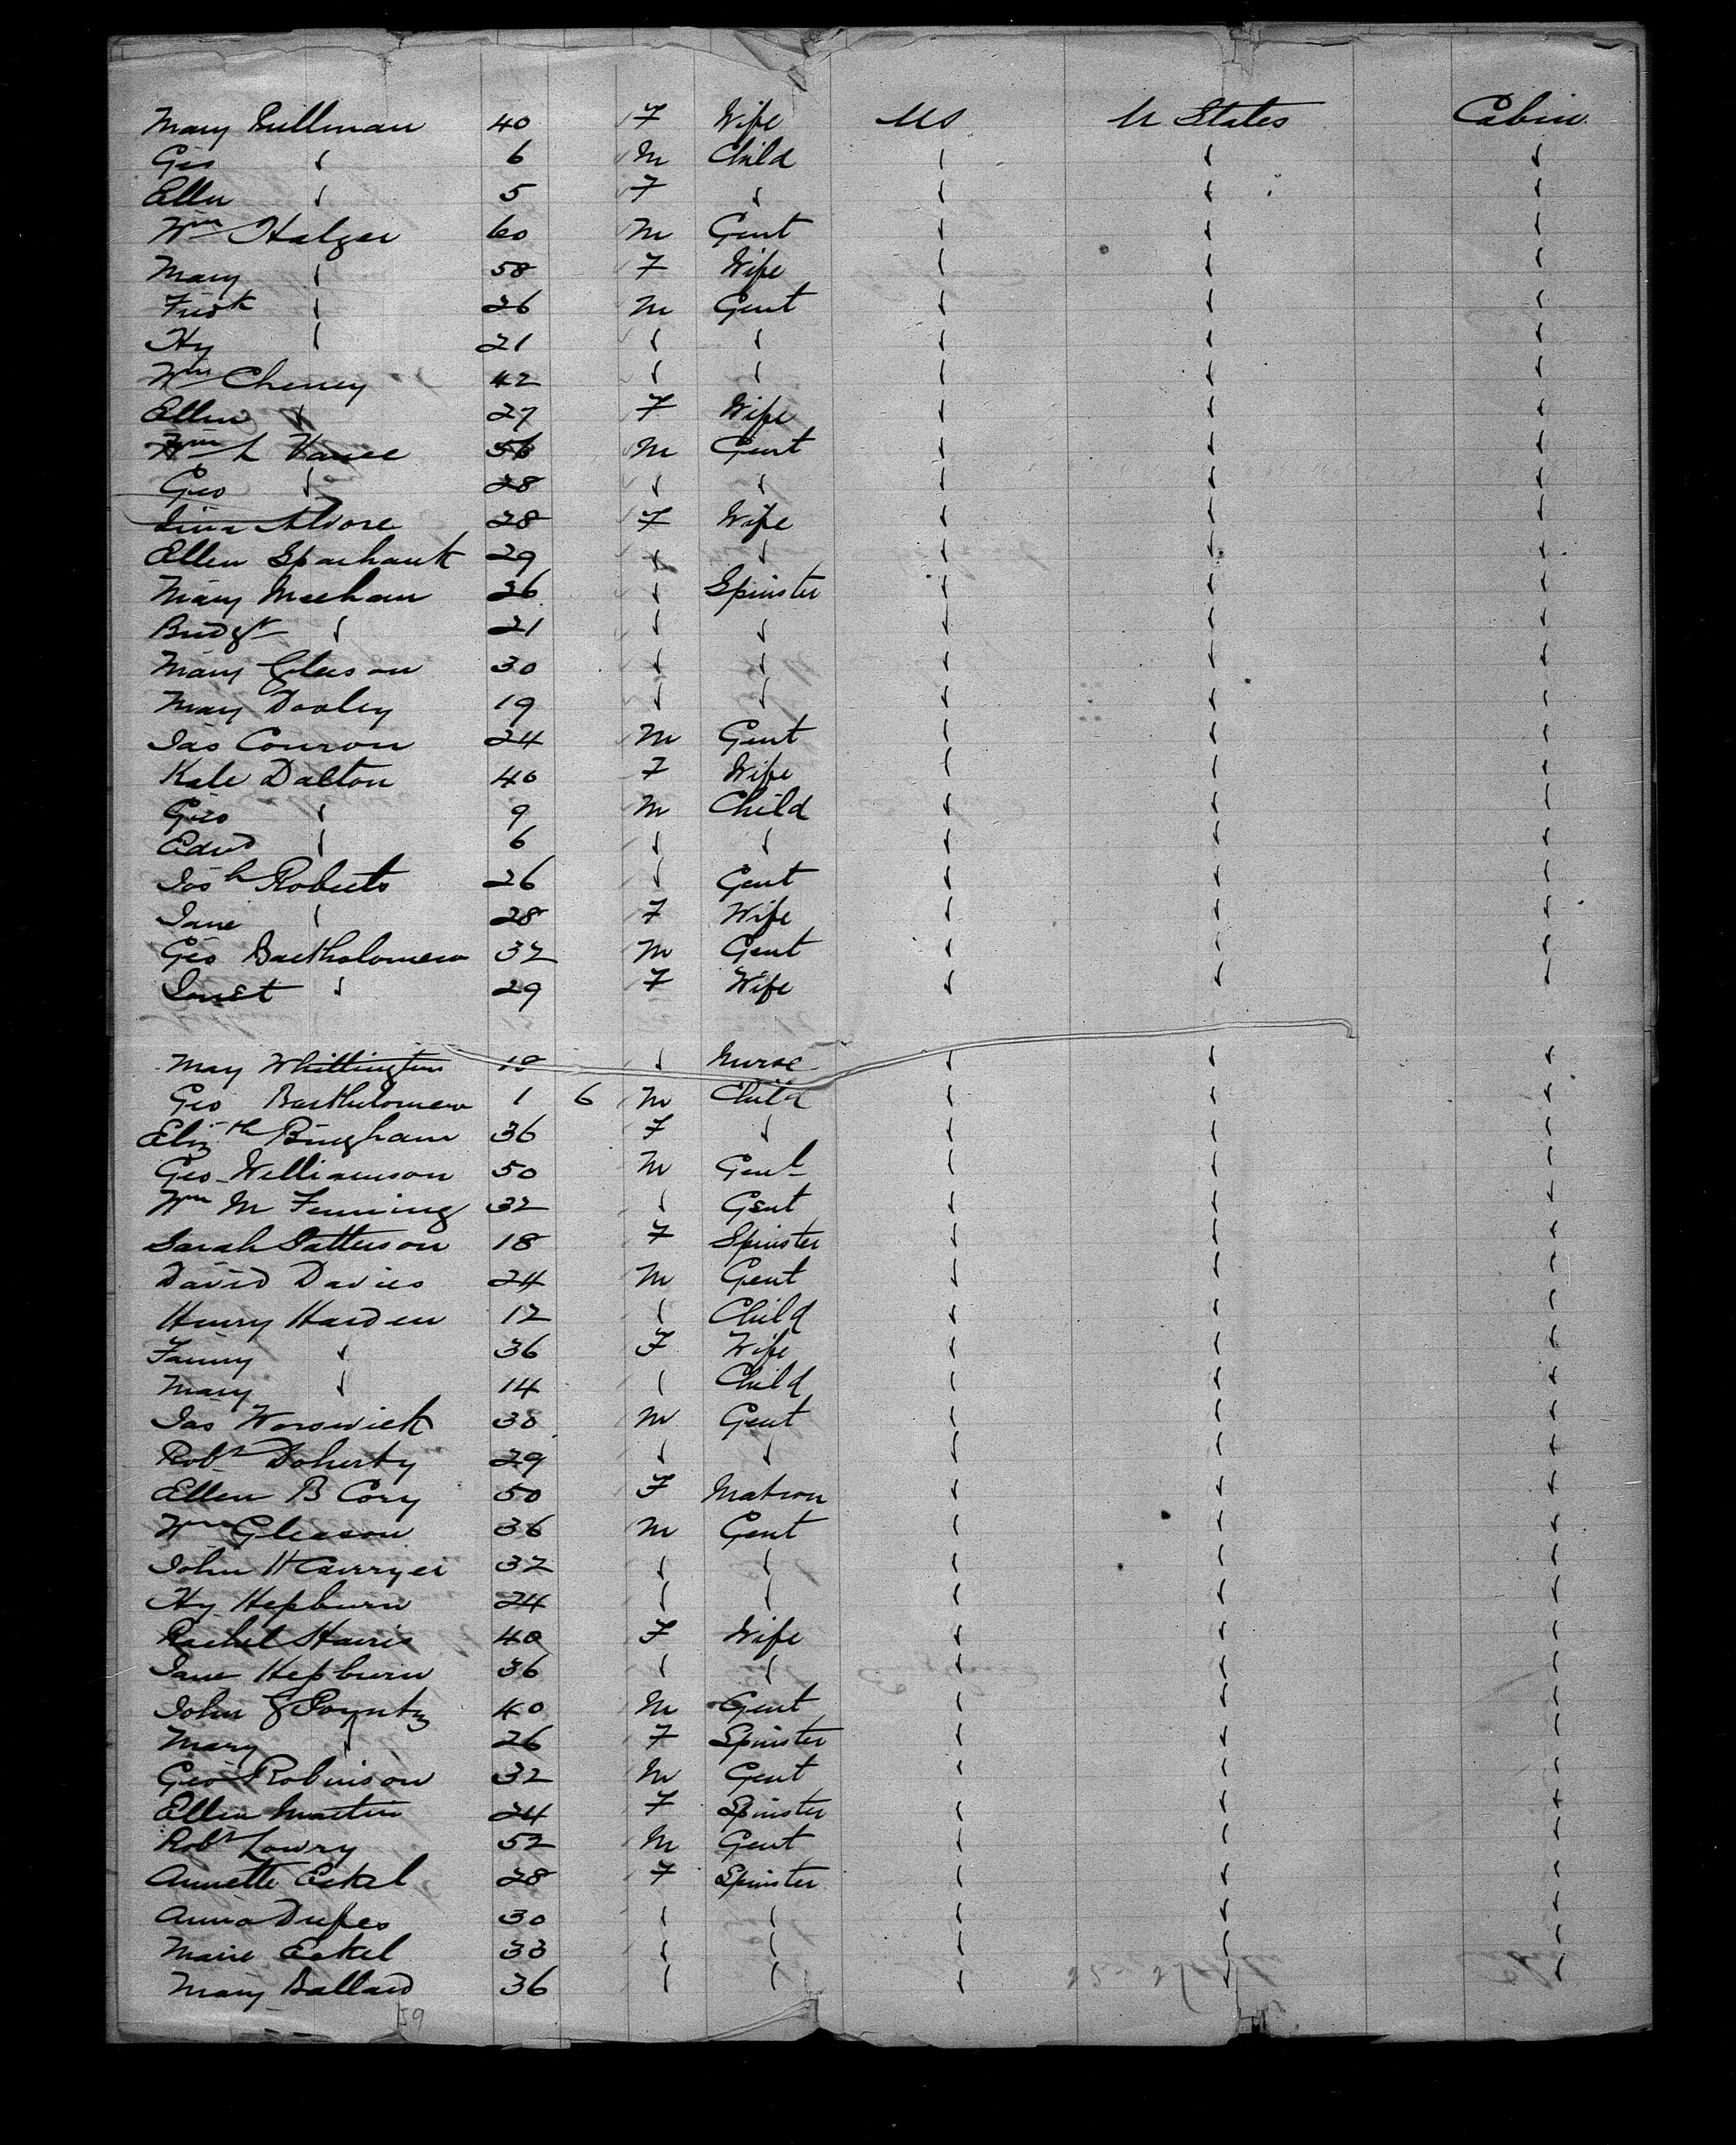 Mary Pullman 40 F Wife US U States Cabin
Geo √ 6 M Child √ √ √
Ellen √ 5 F √ √ √ √
Wm Halger 60 M Gent √ √ √
Mary √ 58 F Wife √ √ √
Fredk √ 26 M Gent √ √ √
Hy √ 21 √ √ √ √ √
Wm Cheney 42 √ √ √ √ √
Ellen √ 27 F Wife √ √ √
Wm L Vance 56 M Gent √ √ √
Geo √ 28 √ √ √ √ √
Moore 28 F Wife √ √ √
Ellen Sparhawk 29 √ √ √ √ √
Mary Meehan 26 √ Spinster √ √ √
Bridgt √ 21 √ √ √ √ √
Mary Gleeson 30 √ √ √ √ √
Mary Dooley 19 √ √ √ √ √
Jas Conron 24 M Gent √ √ √
Kate Dalton 40 F Wife √ √ √
Geo √ 9 M Child √ √ √
Edwd √ 6 √ √ √ √ √
Josh Roberts 26 √ Gent √ √ √
Jane √ 28 F Wife √ √ √
Geo Bartholomew 32 M Gent √ √ √
√ 29 F Wife √ √ √
May Whittington 18 √ Nurse √ √ √
Geo Bartholomew 1 6 M Child √ √ √
Elizth Bingham 36 F √ √ √ √
Geo Williamson 50 M Gent √ √ √
Wm M Fenning 32 √ Gent √ √ √
Sarah Patterson 18 F Spinster √ √ √
David Davies 24 M Gent √ √ √
Henry Harden 12 √ Child √ √ √
Fanny √ 36 F Wife √ √ √
Mary √ 14 √ Child √ √ √
Jas Worswick 30 M Gent √ √ √
Robt Doherty 29 √ √ √ √ √
Ellen B Cory 50 F Matron √ √ √
Wm Gleason 36 M Gent √ √ √
John H 32 √ √ √ √ √
Hy Hepburn 24 √ √ √ √ √
Rachel Harris 40 F Wife √ √ √
Jane Hepburn 36 √ √ √ √ √
John Poyntz 40 M Gent √ √ √
Mary √ 26 F Spinster √ √ √
Geo Robinson 32 M Gent √ √ √
Ellen Martin 24 F Spinster √ √ √
Robt Lowry 52 M Gent √ √ √
Annette Eckel 28 F Spinster √ √ √
Anna Dupes 30 √ √ √ √ √
Marie Eckel 33 √ √ √ √ √
Mary Ballard 36 √ √ √ √ √
59